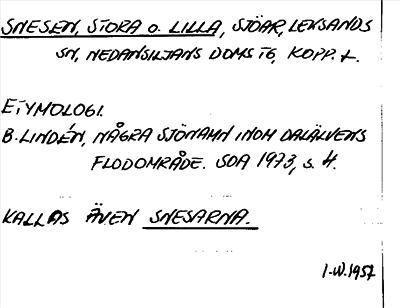 SNESEN, STORA O. LILLA, SJÖAR, LEKSANDS
SN, NEDANSILJANS DOMSTG, KOPP. L.
ETYMOLOGI.
B. LINDÉN, NÅGRA SJÖNAMN INOM DALÄLVENS
FLODOMRÅDE. SOÅ 1973, s. 4.
KALLAS ÄVEN SNESARNA.
I.W. 1957